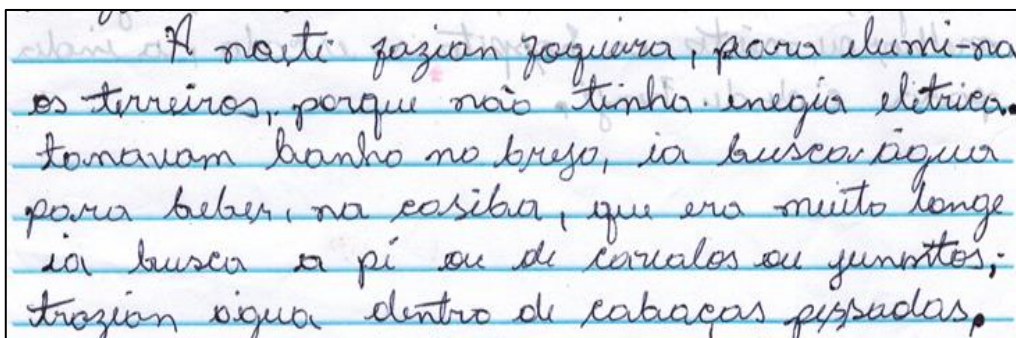 A noite fazian fogueira, para elumi-na
os terreiros, porque não tinha enegia elitrica.
tomavam banho no brejo, ia busca água
para beber, na casiba, que era muito longe
ia busca a pí ou de cavalos ou junmttos;
trazian água dentro de cabaças pessadas.